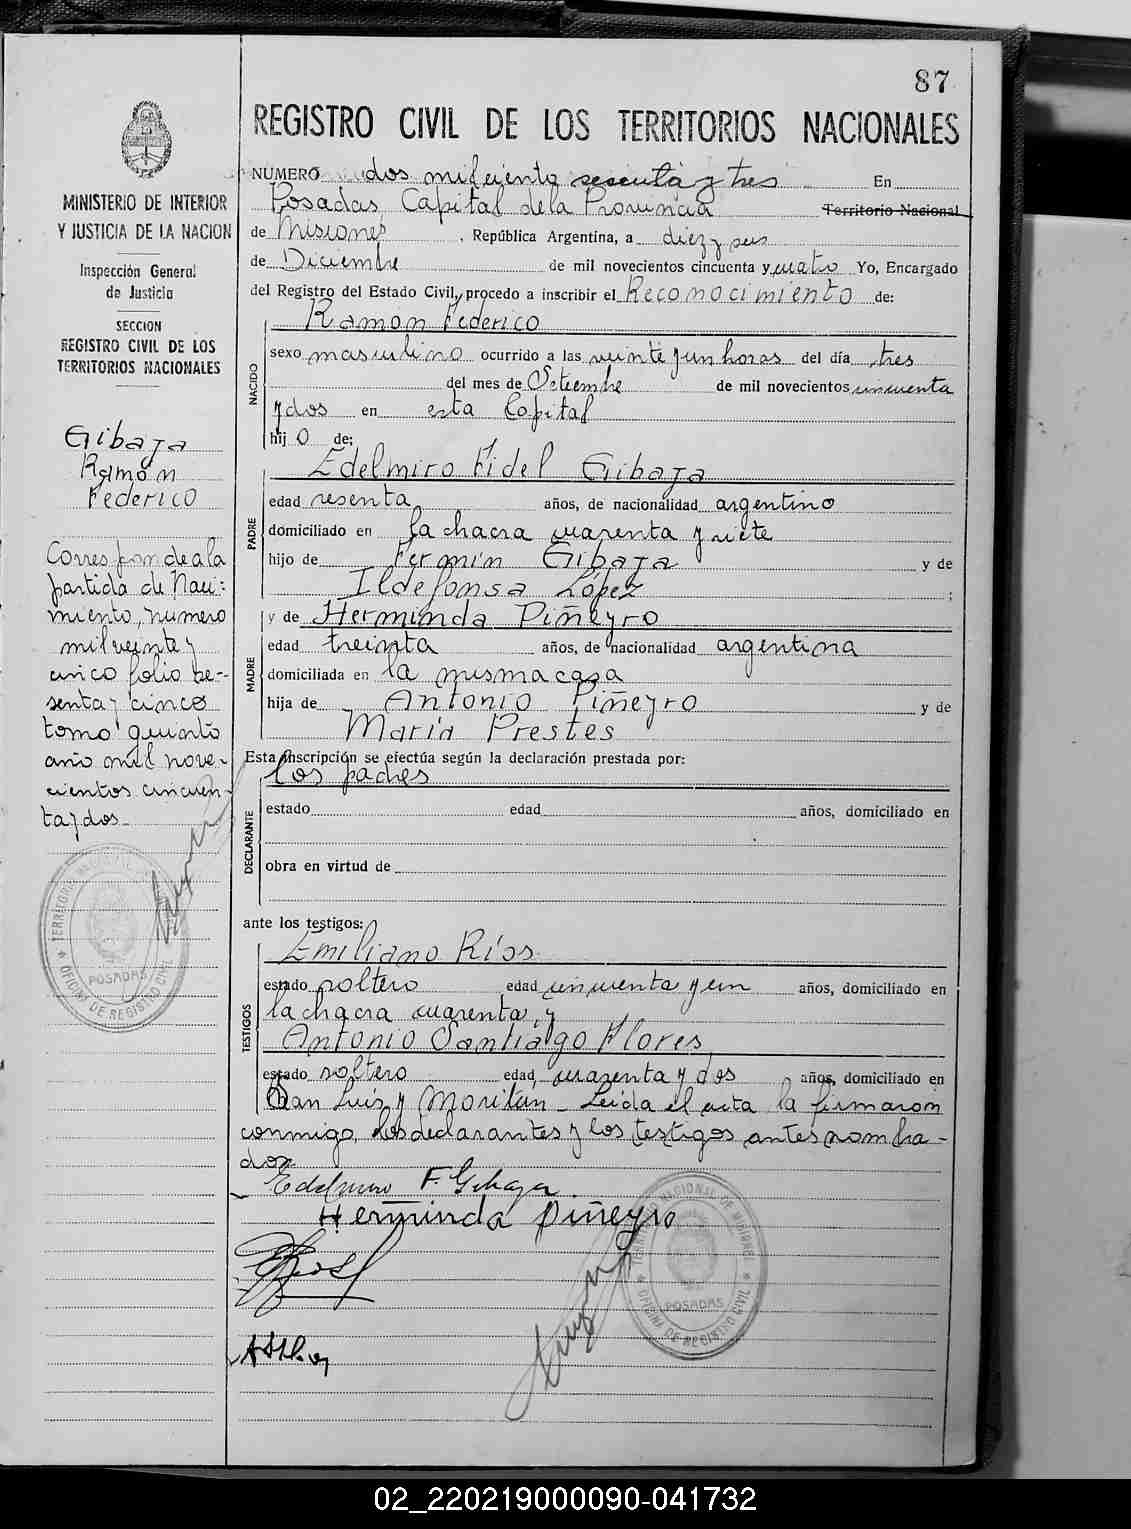 87
REGISTRO CIVIL DE LOS TERRITORIOS NACIONALES
MINISTERIO DE INTERIOR
Y JUSTICIA DE LA NACION
Inspección General
de Justicia
SECCION
REGISTRO CIVIL DE LOS
TERRITORIOS NACIONALES
Gibaja
Ramón
Federico
Corresponde a la
partida de Naci-
miento, numero
mil veinte y
cinco folio se-
senta y cinco
tomo quinto
año mil nove-
cientos cincuen-
ta y dos-
TERRITORIO NACIONAL DE MISIONES
POSADAS
OFICINA DE REGISTRO CIVIL
NUMERO dos mil ciento sesenta y tres En
Posadas, Capital de la Provincia Territorio Nacional
de Misiones, República Argentina, a diez y seis
de Diciembre de mil novecientos cincuenta y cuatro Yo, Encargado
del Registro del Estado Civil, procedo a inscribir el Reconocimiento de:
NACIDO
Ramón Federico
sexo masculino ocurrido a las veinte y un horas del día tres
del mes de Setiembre de mil novecientos cincuenta
y dos en esta Capital
hijo de:
PADRE
Edelmiro Fidel Gibaja
edad sesenta años, de nacionalidad argentino
domiciliado en la chacra cuarenta y siete
hijo de Fermín Gibaja y de
Ildefonsa López ;
MADRE
y de Herminda Piñeyro
edad treinta años, de nacionalidad argentina
domiciliada en la misma casa
hija de Antonio Piñeyro y de
María Prestes
Esta inscripción se efectúa según la declaración prestada por:
DECLARANTE
los padres
estado edad años, domiciliado en
obra en virtud de
ante los testigos:
TESTIGOS
Emiliano Ríos
estado soltero edad cincuenta y un años, domiciliado en
la chacra cuarenta, y
Antonio Santiago Flores
estado soltero edad, cuarenta y dos años, domiciliado en
San Luis y Moritán - Leida el acta la firmaron
conmigo, los declarantes y los testigos antes nombra-
dos
Edelmiro F. Gibaja
Herminda Piñeyro
TERRITORIO NACIONAL DE MISIONES
POSADAS
OFICINA DE REGISTRO CIVIL
02_220219000090-041732